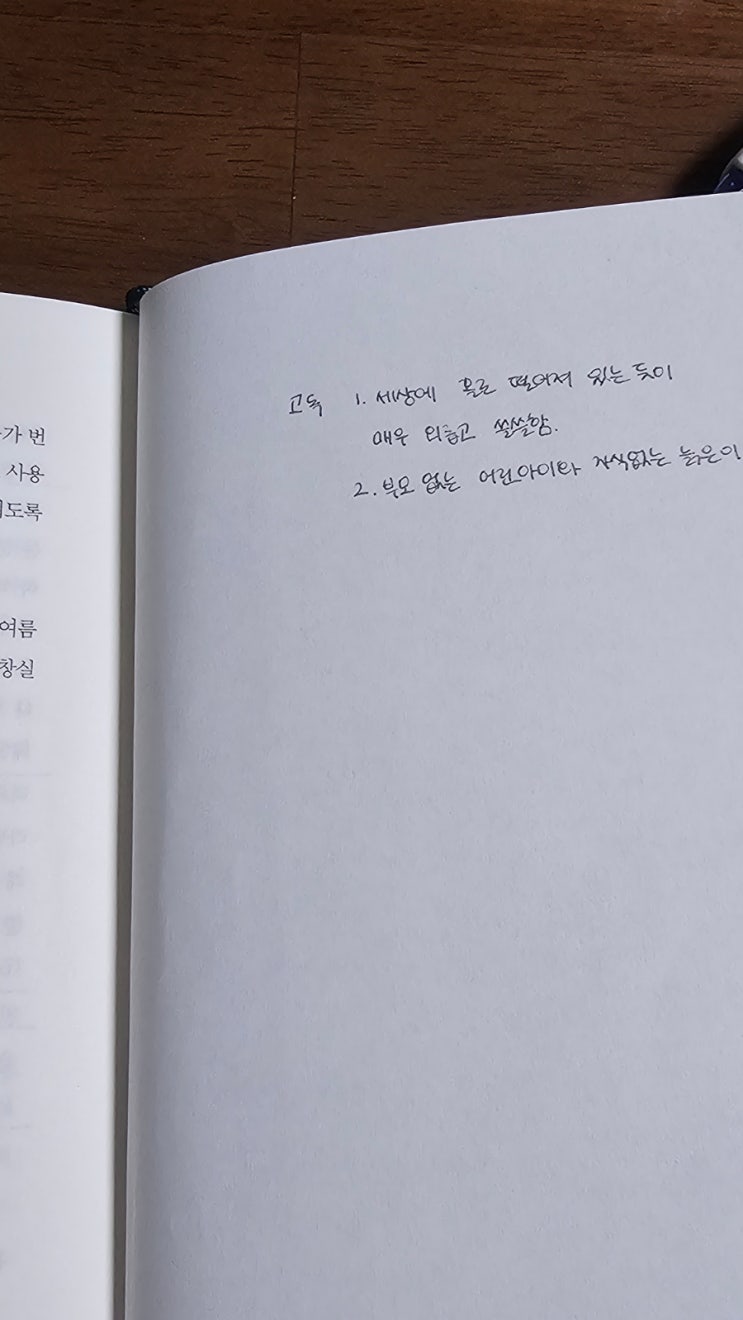 가 번
사용
도록
여름
창실
고독 1. 세상에 홀로 떨어져 있는 듯이
매우 외롭고 쓸쓸함.
2. 부모 없는 어린아이와 자식없는 늙은이